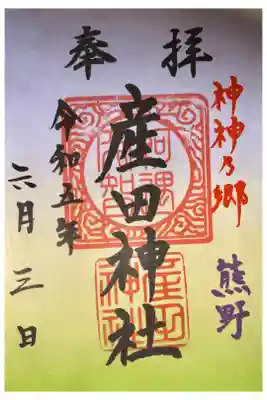 奉拝
神神乃郷
熊野
産田神社
令和五年
六月三日
産田
神社